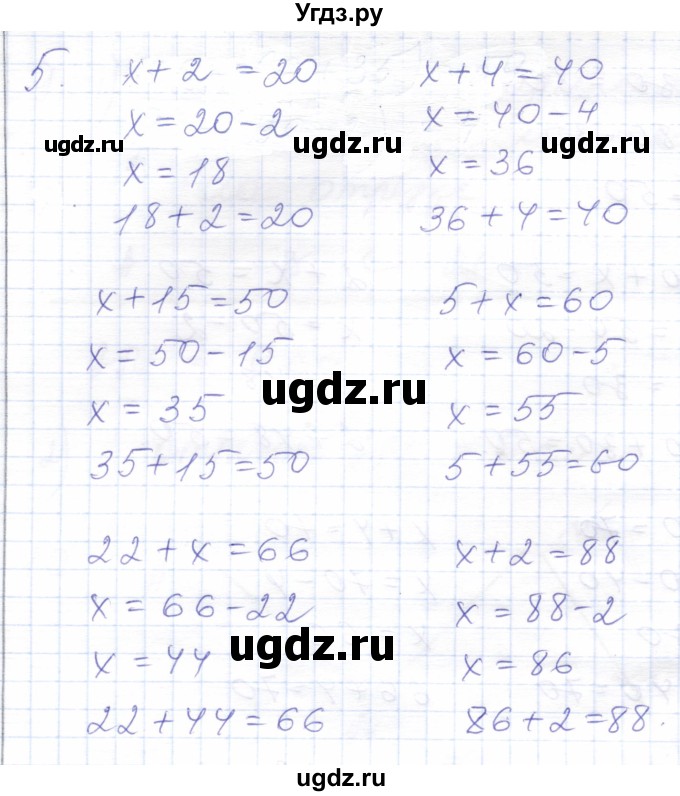 Угдз.ру
5. x + 2 = 20 x + 4 = 40
x = 20 - 2 x = 40 - 4
ugdz.ru ugdz.ru ugdz.ru
x = 18 x = 36
18 + 2 = 20 36 + 4 = 40
x + 15 = 50 5 + x = 60
x = 50 - 15 x = 60 - 5
ugdz.ru
x = 35 x = 55
35 + 15 = 50 5 + 55 = 60
22 + x = 66 x + 2 = 88
x = 66 - 22 x = 88 - 2
ugdz.ru
x = 44 x = 86
22 + 44 = 66 86 + 2 = 88.
ugdz.ru